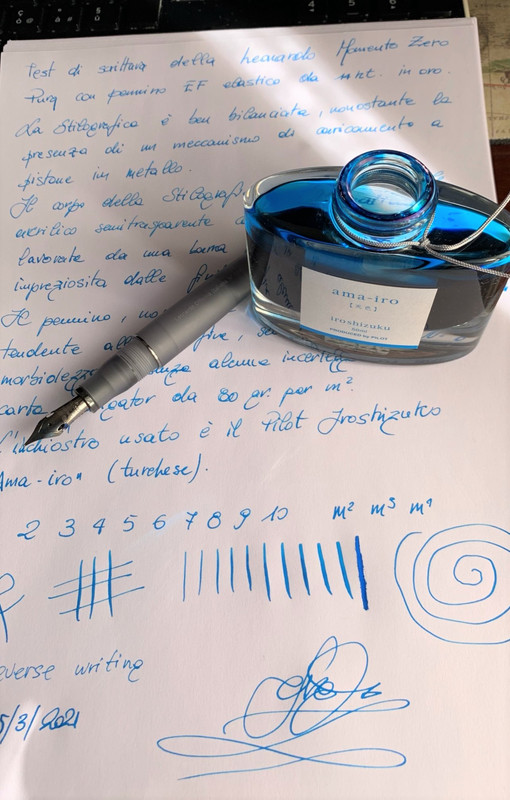 Test di scrittura della Leonardo Momento Zero
Pura con pennino EF elastico da 14 kt. in oro.
La Stilografica è ben bilanciata, nonostante la
presenza di un meccanismo di caricamento a
pistone in metallo.
Il corpo della Stilografi
acrilico semitrasparente
lavorate da una barra
impreziosita dalle fini
Il pennino, no
tendente all fine, se
morbidezza senza alcuna incertez
carta gator da 80 gr. per m²
L'inchiostro usato è il Pilot Iroshizuko
Ama-iro" (turchese).
2 3 4 5 6 7 8 9 10 m² m³
everse writing
5/3/2021
ama-iro
iroshizuku
50ml
PRODUCED by PILOT